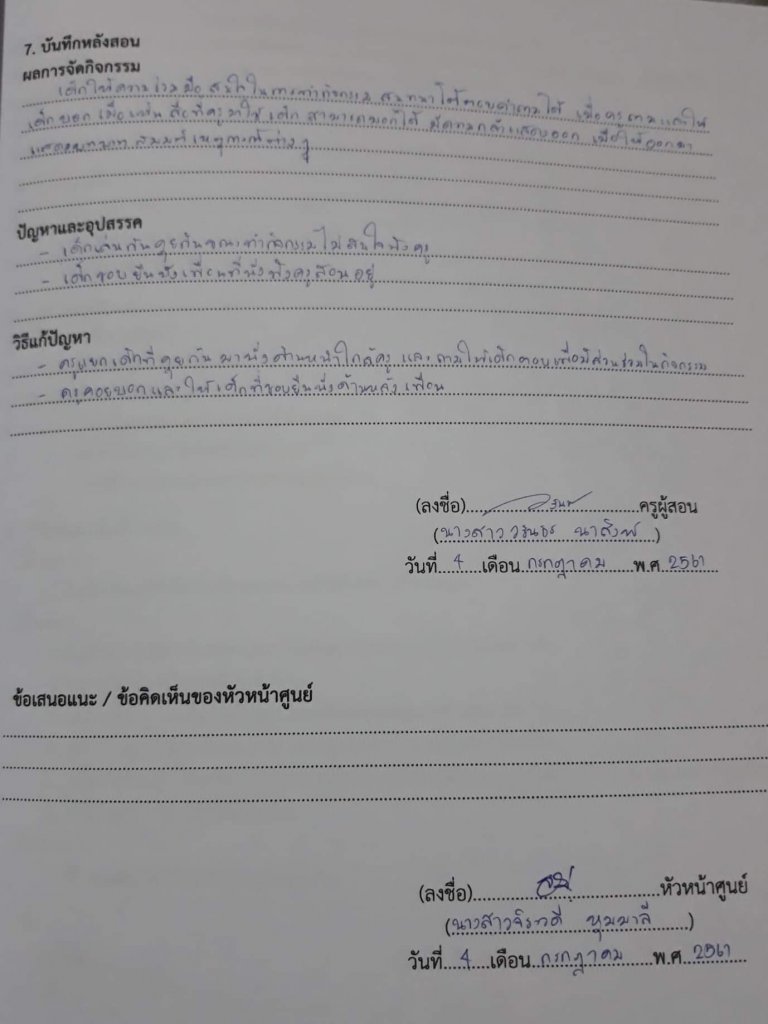 7. บันทึกหลังสอน
ผลการจัดกิจกรรม
เด็กให้ความร่วมมือ สนใจในการทำกิจกรรม สนทนาโต้ตอบคำถามได้ เมื่อครูถามและให้
เด็กบอก เมื่อเห็น สื่อที่ครูมาให้ เด็ก สามารถบอกได้ มีความกล้าแสดงออก เมื่อให้ออกมา
แสดงบทบาท สมมติ เหตุการณ์ต่างๆ
ปัญหาและอุปสรรค
- เด็กเล่นกันคุยกันขณะทำกิจกรรม ไม่สนใจฟังครู
- เด็กชอบยืนบังเพื่อนที่นั่งฟังครูสอนอยู่
วิธีแก้ปัญหา
- ครูแยกเด็กที่คุยกัน มานั่งด้านหน้าใกล้ครู และถามให้เด็กตอบเพื่อมีส่วนร่วมในกิจกรรม
- ครูคอยบอกและให้เด็กที่ชอบยืนนั่งด้านหลังเพื่อน
(ลงชื่อ)..........ครูผู้สอน
(นางสาว )
วันที่ 4 เดือน กรกฎาคม พ.ศ. 2561
ข้อเสนอแนะ / ข้อคิดเห็นของหัวหน้าศูนย์
(ลงชื่อ)..........หัวหน้าศูนย์
(นางสาวจิราวดี หุมมาลี)
วันที่ 4 เดือน กรกฎาคม พ.ศ. 2561